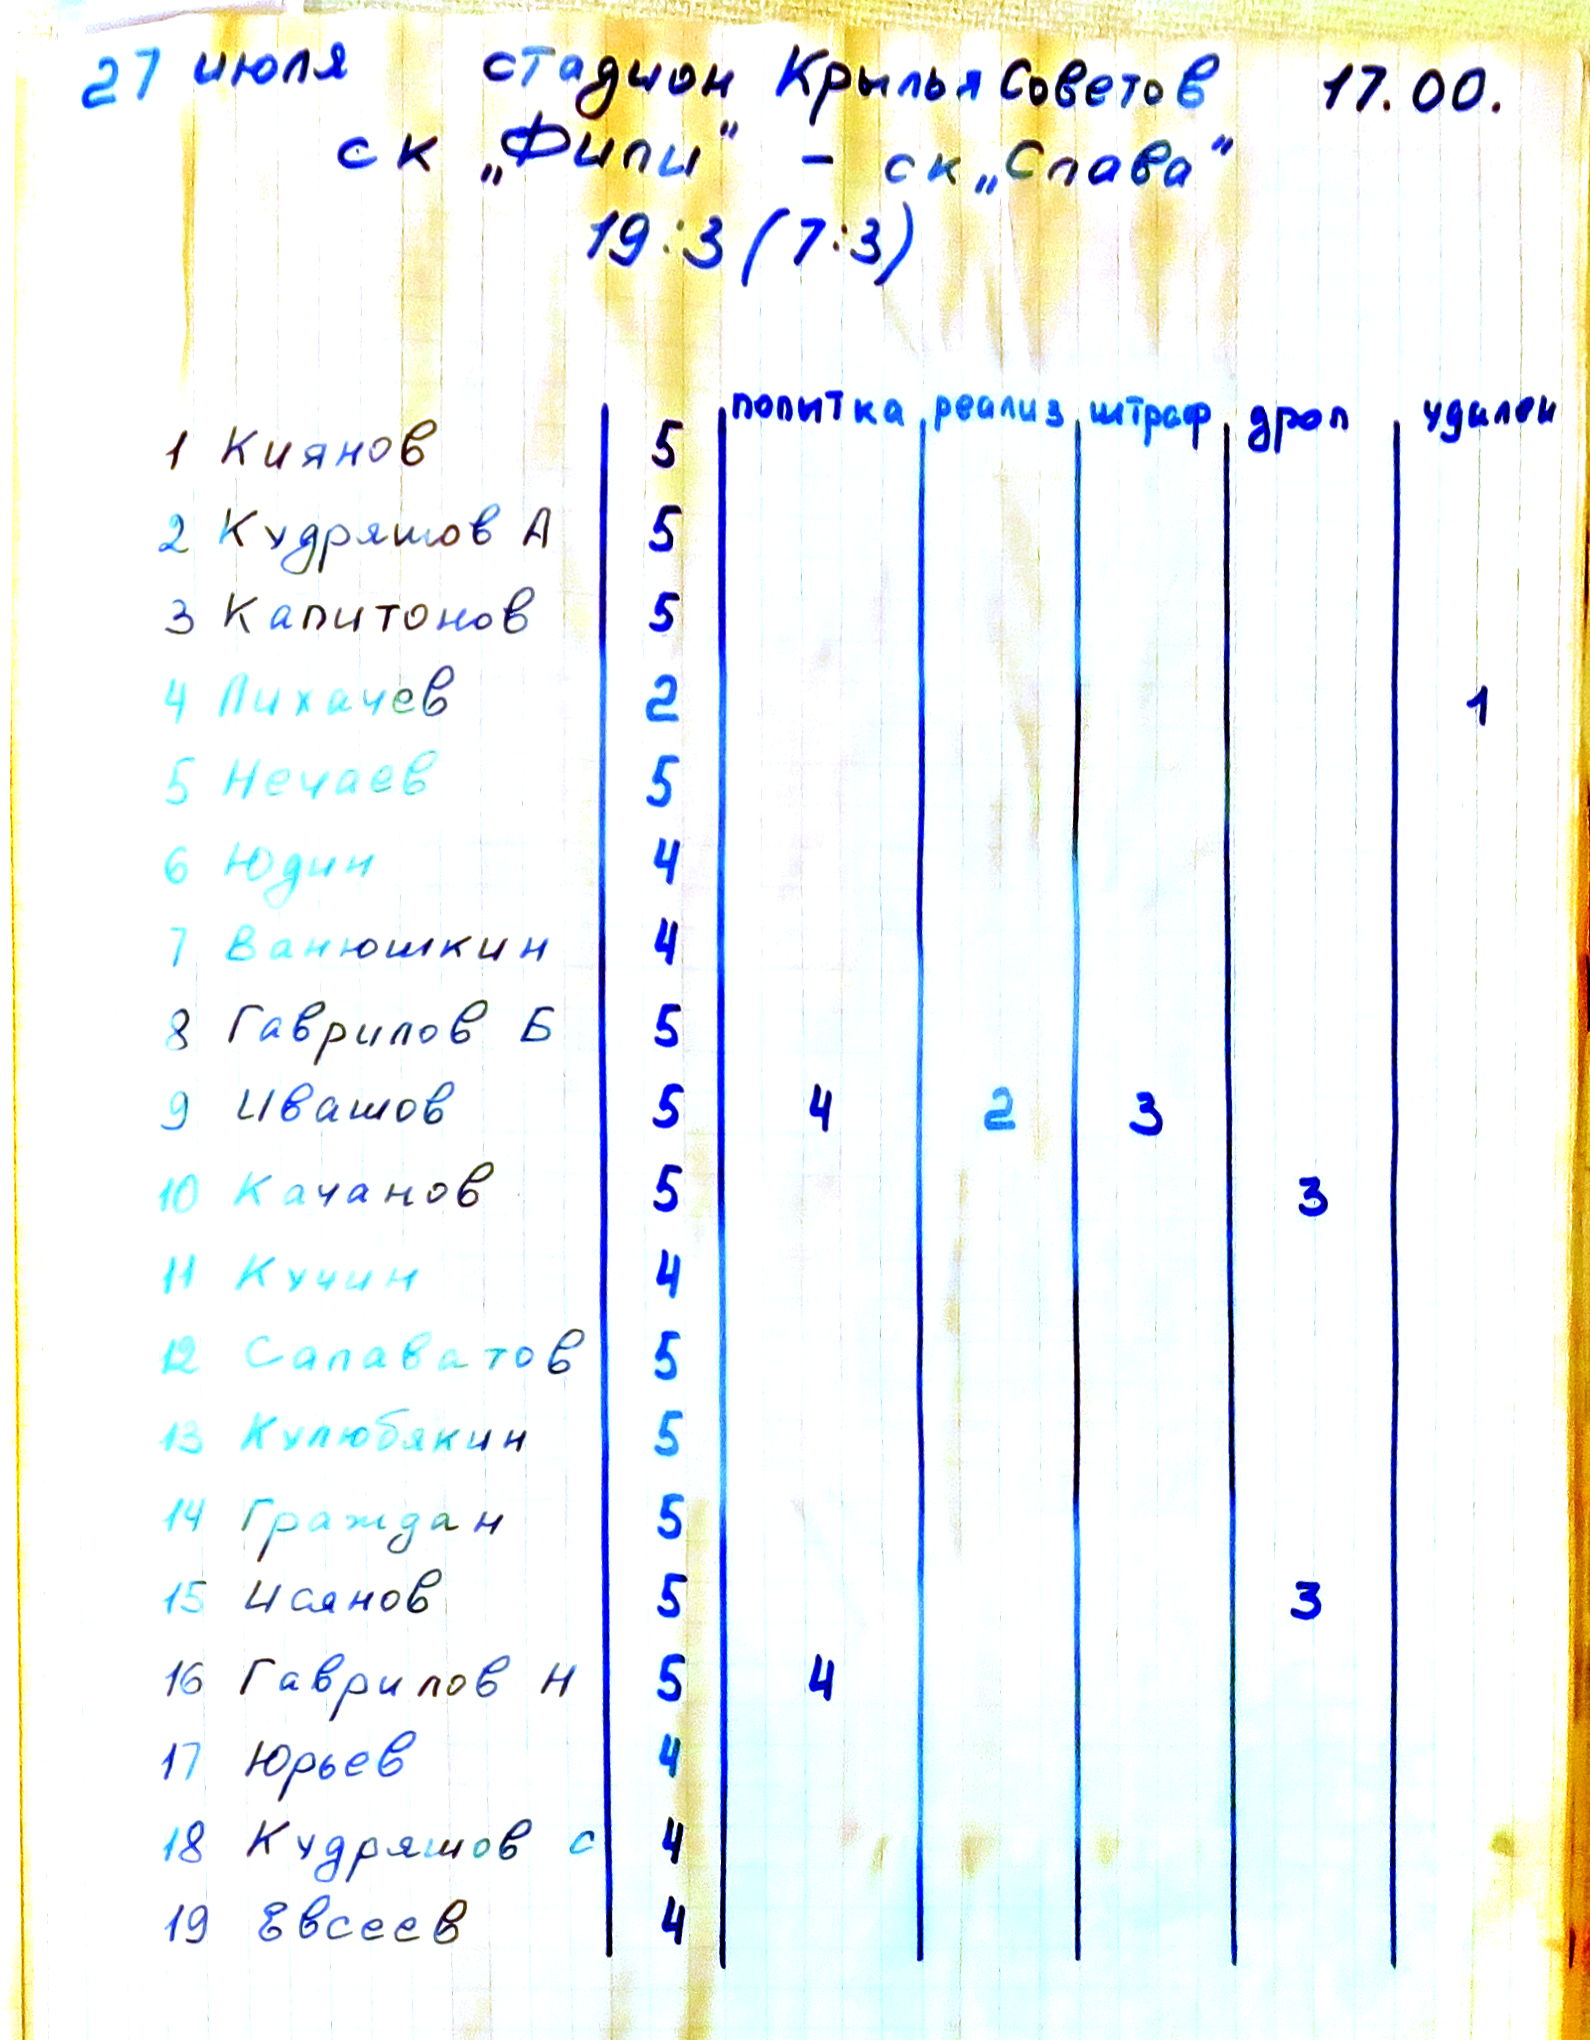 27 июля стадион Крылья Советов 17.00.
ск „Фили" - ск „Слава"
19:3 (7:3)
попытка реализ штраф дроп удален
1 Киянов 5
2 Кудряшов А 5
3 Капитонов 5
4 Лихачев 2 1
5 Нечаев 5
6 Юдин 4
7 Ванюшкин 4
8 Гаврилов Б 5
9 Ивашов 5 4 2 3
10 Качанов 5 3
11 Кучин 4
12 Салаватов 5
13 Кулюбякин 5
14 Граждан 5
15 Исянов 5 3
16 Гаврилов Н 5 4
17 Юрьев 4
18 Кудряшов С 4
19 Евсеев 4